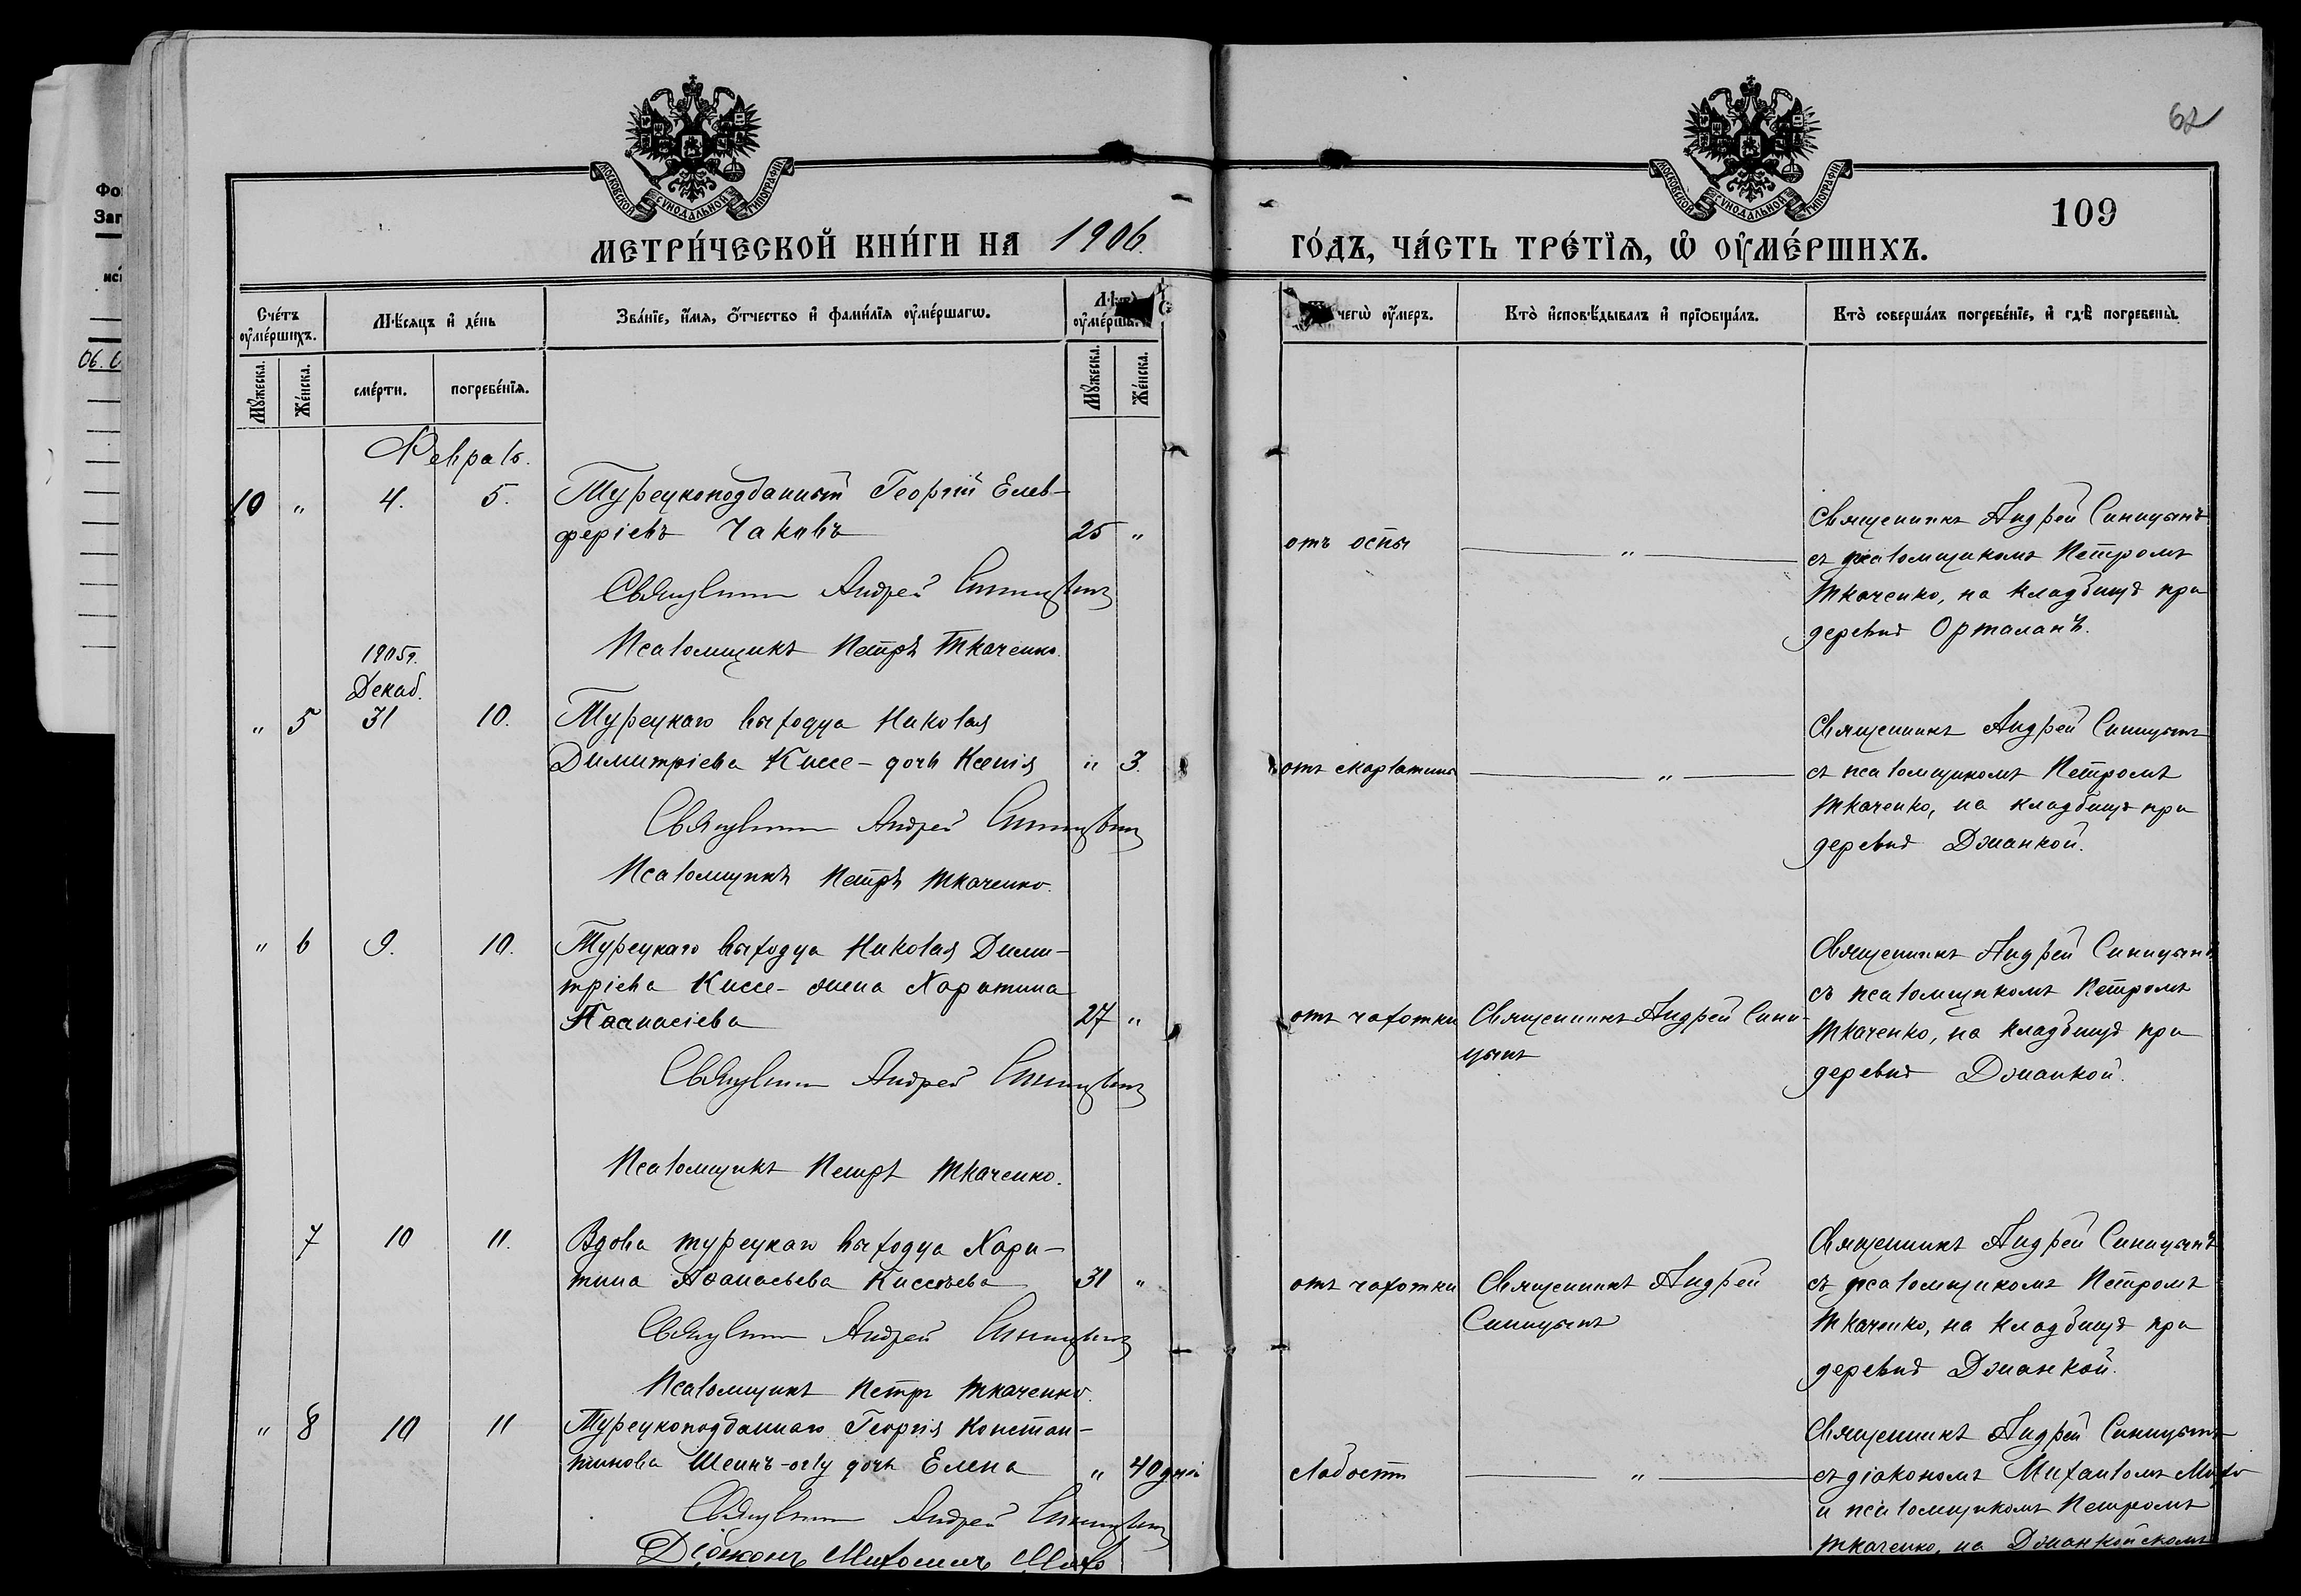 62
109
МОСКОВСКОЙ СѴНОДАЛЬНОЙ ТИПОГРАФІИ
МОСКОВСКОЙ СѴНОДАЛЬНОЙ ТИПОГРАФІИ
МЕТРИ́ЧЕСКОЙ КНИ́ГИ НА 1906.
ГО́ДЪ, ЧА́СТЬ ТРЕ́ТЇѦ, Ѡ҆ ОУ҆МЕ́РШИХЪ.
Сче́тъ оу҆ме́ршихъ.
Мѣ́сяцъ и҆ де́нь
Зва́нїе, и҆́мя, ѻ҆́тчество и҆ фами́лїя оу҆ме́ршагѡ.
оу҆ме́рш
чегѡ̀ оу҆́меръ.
Кто̀ и҆сповѣ́дывалъ и҆ прїѡбща́лъ.
Кто̀ соверша́лъ погребе́нїе, и҆ гдѣ̀ погребены̀.
Мꙋ́жеска.
Же́нска.
сме́рти.
погребе́нїя.
Мꙋ́жеска.
Же́нска.
Февраль.
10 " 4. 5. Турецкоподданный Георгій Елев-
ферiевъ Чаковъ 25 "
Священникъ Андрей Синицынъ
Псаломщикъ Петръ Ткаченко.
отъ оспы
"
Священникъ Андрей Синицынъ
съ псаломщикомъ Петромъ
Ткаченко, на кладбищѣ при
деревнѣ Орталанъ.
1905г.
Декаб.
" 5 31 10. Турецкаго выходца Николая
Димитріева Киссе - дочь Ксенія " 3.
Священникъ Андрей Синицынъ
Псаломщикъ Петръ Ткаченко.
отъ скарлатины
"
Священникъ Андрей Синицынъ
съ псаломщикомъ Петромъ
Ткаченко, на кладбищѣ при
деревнѣ Джанкой.
" 6 9. 10. Турецкаго выходца Николая Дими-
тріева Киссе - жена Харитина
Аѳанасіева 27 "
Священникъ Андрей Синицынъ
Псаломщикъ Петръ Ткаченко.
отъ чахотки
Священникъ Андрей Сини-
цынъ
Священникъ Андрей Синицынъ
съ псаломщикомъ Петромъ
Ткаченко, на кладбищѣ при
деревнѣ Джанкой.
7 10 11. Вдова турецкаго выходца Хари-
тина Аѳанасьева 31 "
Священникъ Андрей Синицынъ
Псаломщикъ Петръ Ткаченко.
отъ чахотки
Священникъ Андрей
Синицынъ
Священникъ Андрей Синицынъ
съ псаломщикомъ Петромъ
Ткаченко, на кладбищѣ при
деревнѣ Джанкой.
" 8 10 11 Турецкоподданнаго Георгія Констан-
тинова дочь Елена " 40 дней
Священникъ Андрей Синицынъ
Діаконъ Михаилъ
слабости
"
Священникъ Андрей Синицынъ
съ діакономъ Михаиломъ
и псаломщикомъ Петромъ
Ткаченко, на Джанкойскомъ